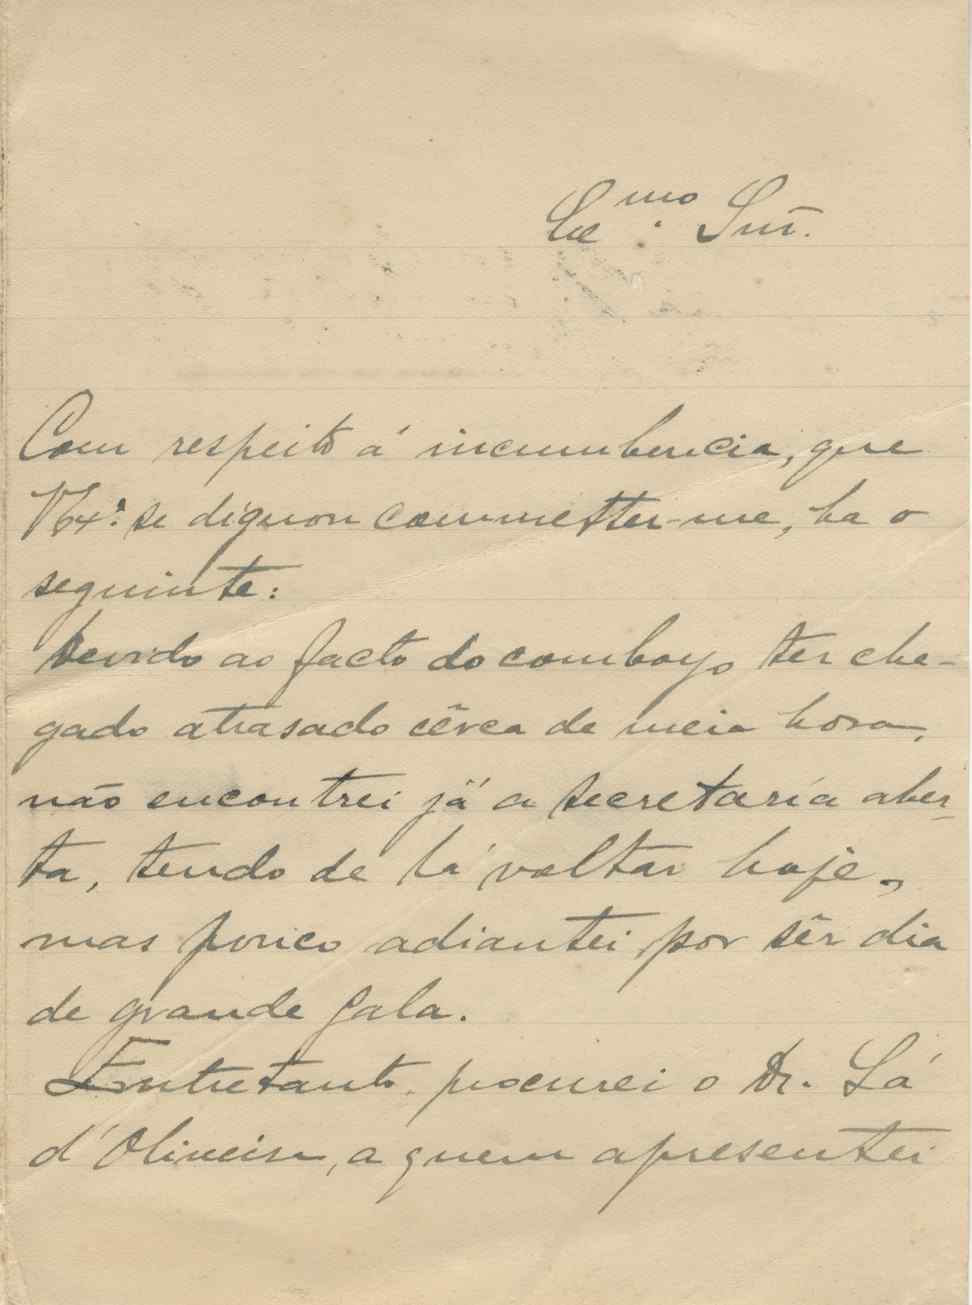 Ex.mo Snr.
Com respeito á incumbencia, que
V. Ex.ª se dignou commetter-me, ha o
seguinte:
Devido ao facto do comboyo ter che-
gado atrasado cêrca de meia hora,
não encontrei já a secretaría aber-
ta, tendo de lá voltar hoje,
mas pouco adiantei por sêr dia
de grande gala.
Entretanto, procurei o Dr. Sá
d'Oliveira, a quem apresentei